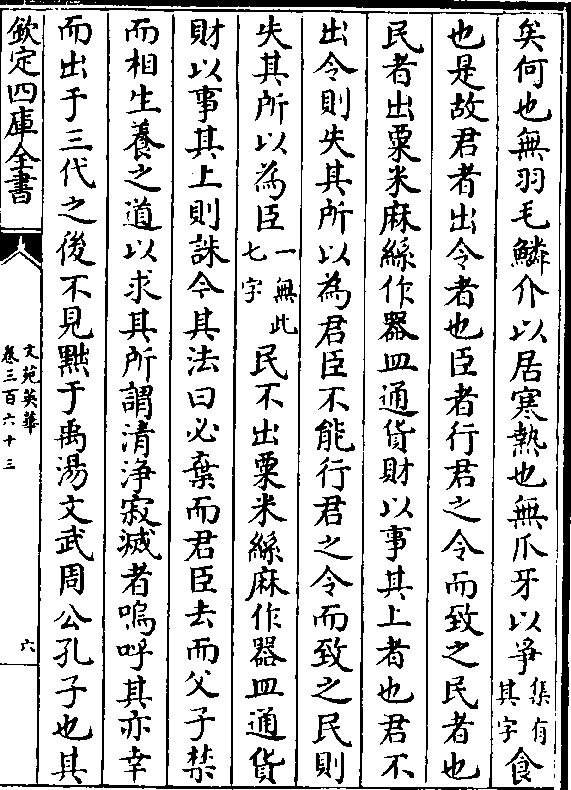 矣何也無羽毛鱗介以居寒熱也無爪牙以爭集有其字食
也是故君者出令者也臣者行君之令而致之民者也
民者出粟米麻絲作器皿通貨財以事其上者也君不
出令則失其所以為君臣不能行君之令而致之民則
失其所以為臣一無此七字民不出粟米絲麻作器皿通貨
財以事其上則誅今其法曰必棄而君臣去而父子禁
而相生養之道以求其所謂清浄寂滅者嗚呼其亦幸
而出于三代之後不見黜于禹湯文武周公孔子也其
欽定四庫全書
文苑英華
卷三百六十三
六